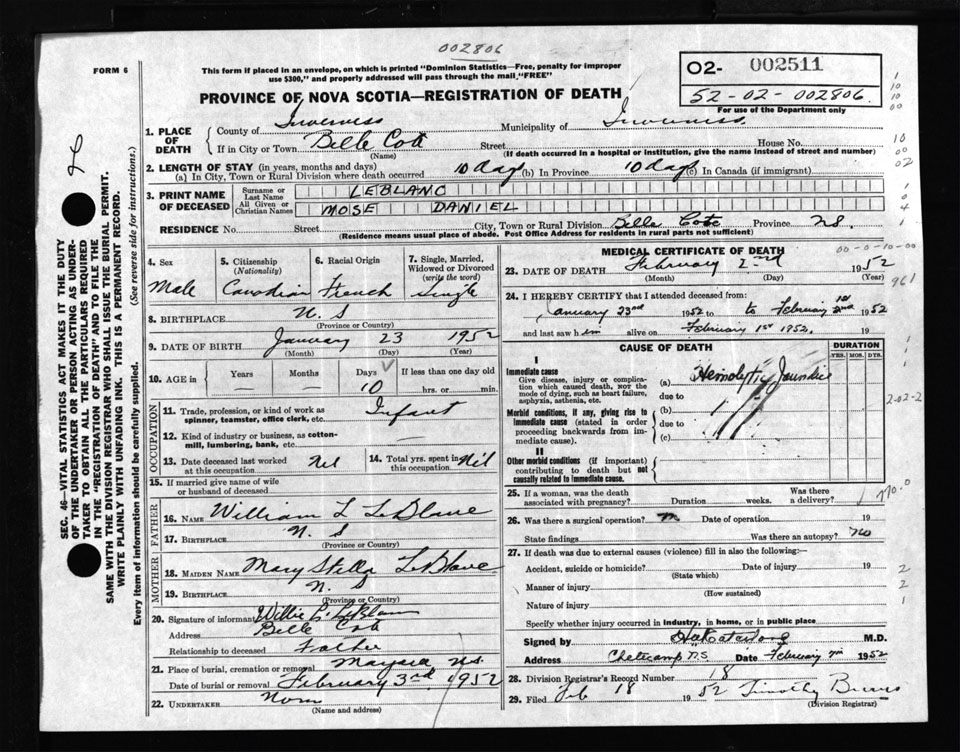 002806
FORM 6
This form if placed in an envelope, on which is printed "Dominion Statistics—Free, penalty for improper
use $300," and properly addressed will pass through the mail "FREE"
02- 002511
52-02-002806.
For use of the Department only
PROVINCE OF NOVA SCOTIA—REGISTRATION OF DEATH
1. PLACE OF DEATH
County of Inverness Municipality of Inverness
If in City or Town Belle Cote Street House No.
(Name) (If death occurred in a hospital or institution, give the name instead of street and number)
2. LENGTH OF STAY (in years, months and days)
(a) In City, Town or Rural Division where death occurred 10 Days (b) In Province 10 days (c) In Canada (if immigrant)
3. PRINT NAME OF DECEASED
Surname or Last Name LEBLANC
All Given or Christian Names MOSE DANIEL
RESIDENCE No. Street City, Town or Rural Division Belle Cote Province N.S.
(Residence means usual place of abode. Post Office Address for residents in rural parts not sufficient)
SEC. 46—VITAL STATISTICS ACT MAKES IT THE DUTY
OF THE UNDERTAKER OR PERSON ACTING AS UNDER-
TAKER TO OBTAIN ALL THE PARTICULARS REQUIRED
IN THE "REGISTRATION OF DEATH" AND TO FILE THE
SAME WITH THE DIVISION REGISTRAR WHO SHALL ISSUE THE BURIAL PERMIT.
WRITE PLAINLY WITH UNFADING INK. THIS IS A PERMANENT RECORD.
Every item of information should be carefully supplied. (See reverse side for instructions.)
4. Sex
Male
5. Citizenship
(Nationality)
Canadian
6. Racial Origin
French
7. Single, Married,
Widowed or Divorced
(write the word)
Single
8. BIRTHPLACE N. S
(Province or Country)
9. DATE OF BIRTH January 23 1952
(Month) (Day) (Year)
10. AGE in
Years Months Days If less than one day old
— — 10 hrs. or min.
OCCUPATION
11. Trade, profession, or kind of work as
spinner, teamster, office clerk, etc. Infant
12. Kind of industry or business, as cotton-
mill, lumbering, bank, etc. —
13. Date deceased last worked
at this occupation Nil
14. Total yrs. spent in
this occupation Nil
15. If married give name of wife
or husband of deceased
FATHER
16. NAME William L LeBlanc
17. BIRTHPLACE N. S
(Province or Country)
MOTHER
18. MAIDEN NAME Mary Stella LeBlanc
19. BIRTHPLACE N. S
(Province or Country)
20. Signature of informant Willie L. LeBlanc
Address Belle Cote
Relationship to deceased Father
21. Place of burial, cremation or removal N.S.
Date of burial or removal February 3rd 1952
22. UNDERTAKER None
(Name and address)
MEDICAL CERTIFICATE OF DEATH
00-0-10-00
23. DATE OF DEATH February 2nd 1952
(Month) (Day) (Year)
961
24. I HEREBY CERTIFY that I attended deceased from:
January 23rd 1952 to February 1952
and last saw him alive on February 1st 1952. 19
CAUSE OF DEATH DURATION
YRS. MOS. DYS.
I
Immediate cause
Give disease, injury or complica-
tion which caused death, NOT the
mode of dying, such as heart failure,
asphyxia, asthenia, etc.
(a) Hemolytic Jaundice
due to
Morbid conditions, if any, giving rise to
immediate cause (stated in order
proceeding backwards from im-
mediate cause).
(b)
due to
(c)
II
Other morbid conditions (if important)
contributing to death but not
causally related to immediate cause.
2-02-2
770.0
25. If a woman, was the death
associated with pregnancy? Duration weeks. Was there
a delivery?
26. Was there a surgical operation? Date of operation 19
State findings Was there an autopsy? no
27. If death was due to external causes (violence) fill in also the following:—
Accident, suicide or homicide? Date of injury 19
(State which)
Manner of injury
(How sustained)
Nature of injury
Specify whether injury occurred in industry, in home, or in public place
Signed by M.D.
Address N.S. Date February 1952
28. Division Registrar's Record Number 18
29. Filed Feb 18 1952 Timothy
(Division Registrar)